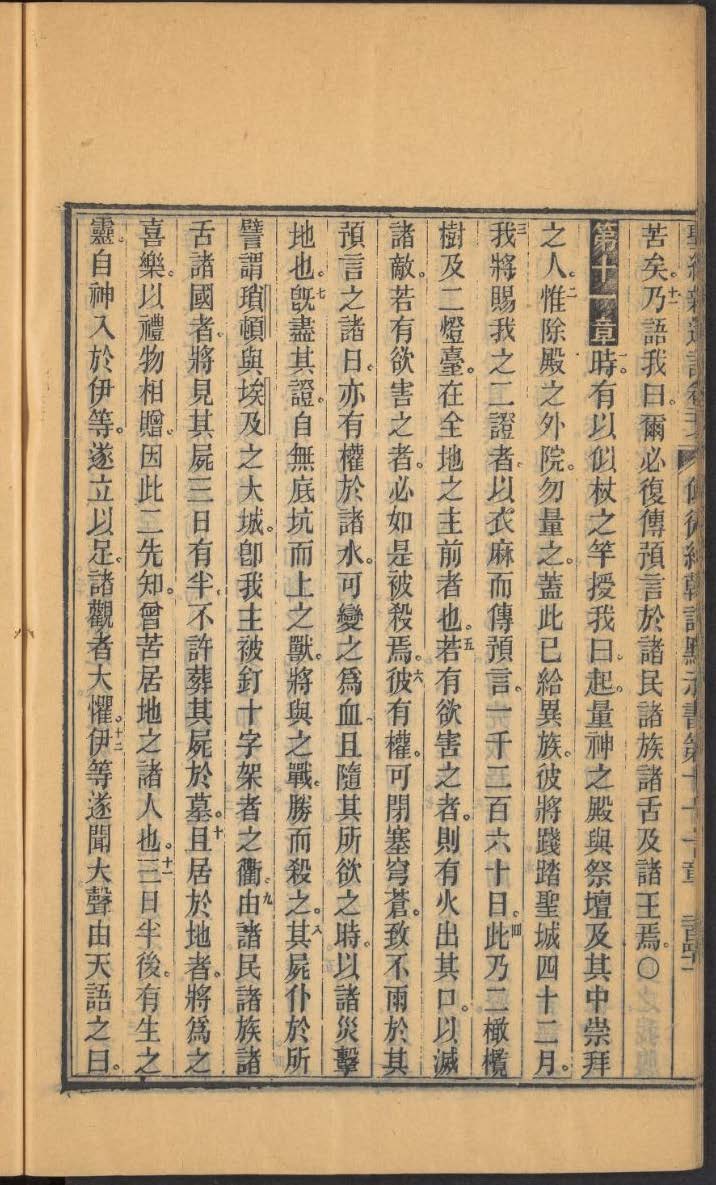 苦矣。十一乃語我曰。爾必復傳預言於諸民諸族諸舌及諸王焉。〇
第十一章 一時有以似杖之竿授我曰。起。量神之殿與祭壇及其中崇拜
之人。二惟除殿之外院。勿量之。蓋此已給異族。彼將踐踏聖城四十二月。
三我將賜我之二證者。以衣麻而傳預言。一千二百六十日。四此乃二橄欖
樹及二燈臺。在全地之主前者也。五若有欲害之者。則有火出其口。以滅
諸敵。若有欲害之者。必如是被殺焉。六彼有權。可閉塞穹蒼。致不雨於其
預言之諸日。亦有權於諸水。可變之爲血。且隨其所欲之時。以諸災擊
地也。七旣盡其證。自無底坑而上之獸。將與之戰。勝而殺之。八其屍仆於所
譬謂瑣頓與埃及之大城。卽我主被釘十字架者之衢。九由諸民諸族諸
舌諸國者。將見其屍三日有半。不許葬其屍於墓。十且居於地者。將爲之
喜樂。以禮物相贈。因此二先知。曾苦居地之諸人也。十一三日半後。有生之
靈。自神入於伊等。遂立以足。諸觀者大懼。十二伊等遂聞大聲由天語之曰。